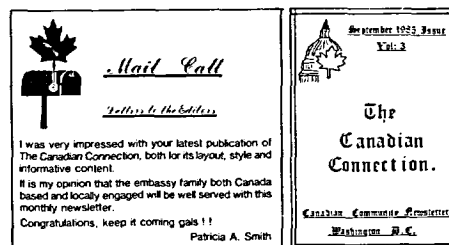 Mail Call
Letters to the Editors
I was very impressed with your latest publication of
The Canadian Connection, both for its layout, style and
informative content.
It is my opinion that the embassy family both Canada
based and locally engaged will be well served with this
monthly newsletter.
Congratulations, keep it coming gals ! !
Patricia A. Smith
September 1985 Issue
Vol: 3
The
Canadian
Connection.
Canadian Community Newsletter
Washington D.C.